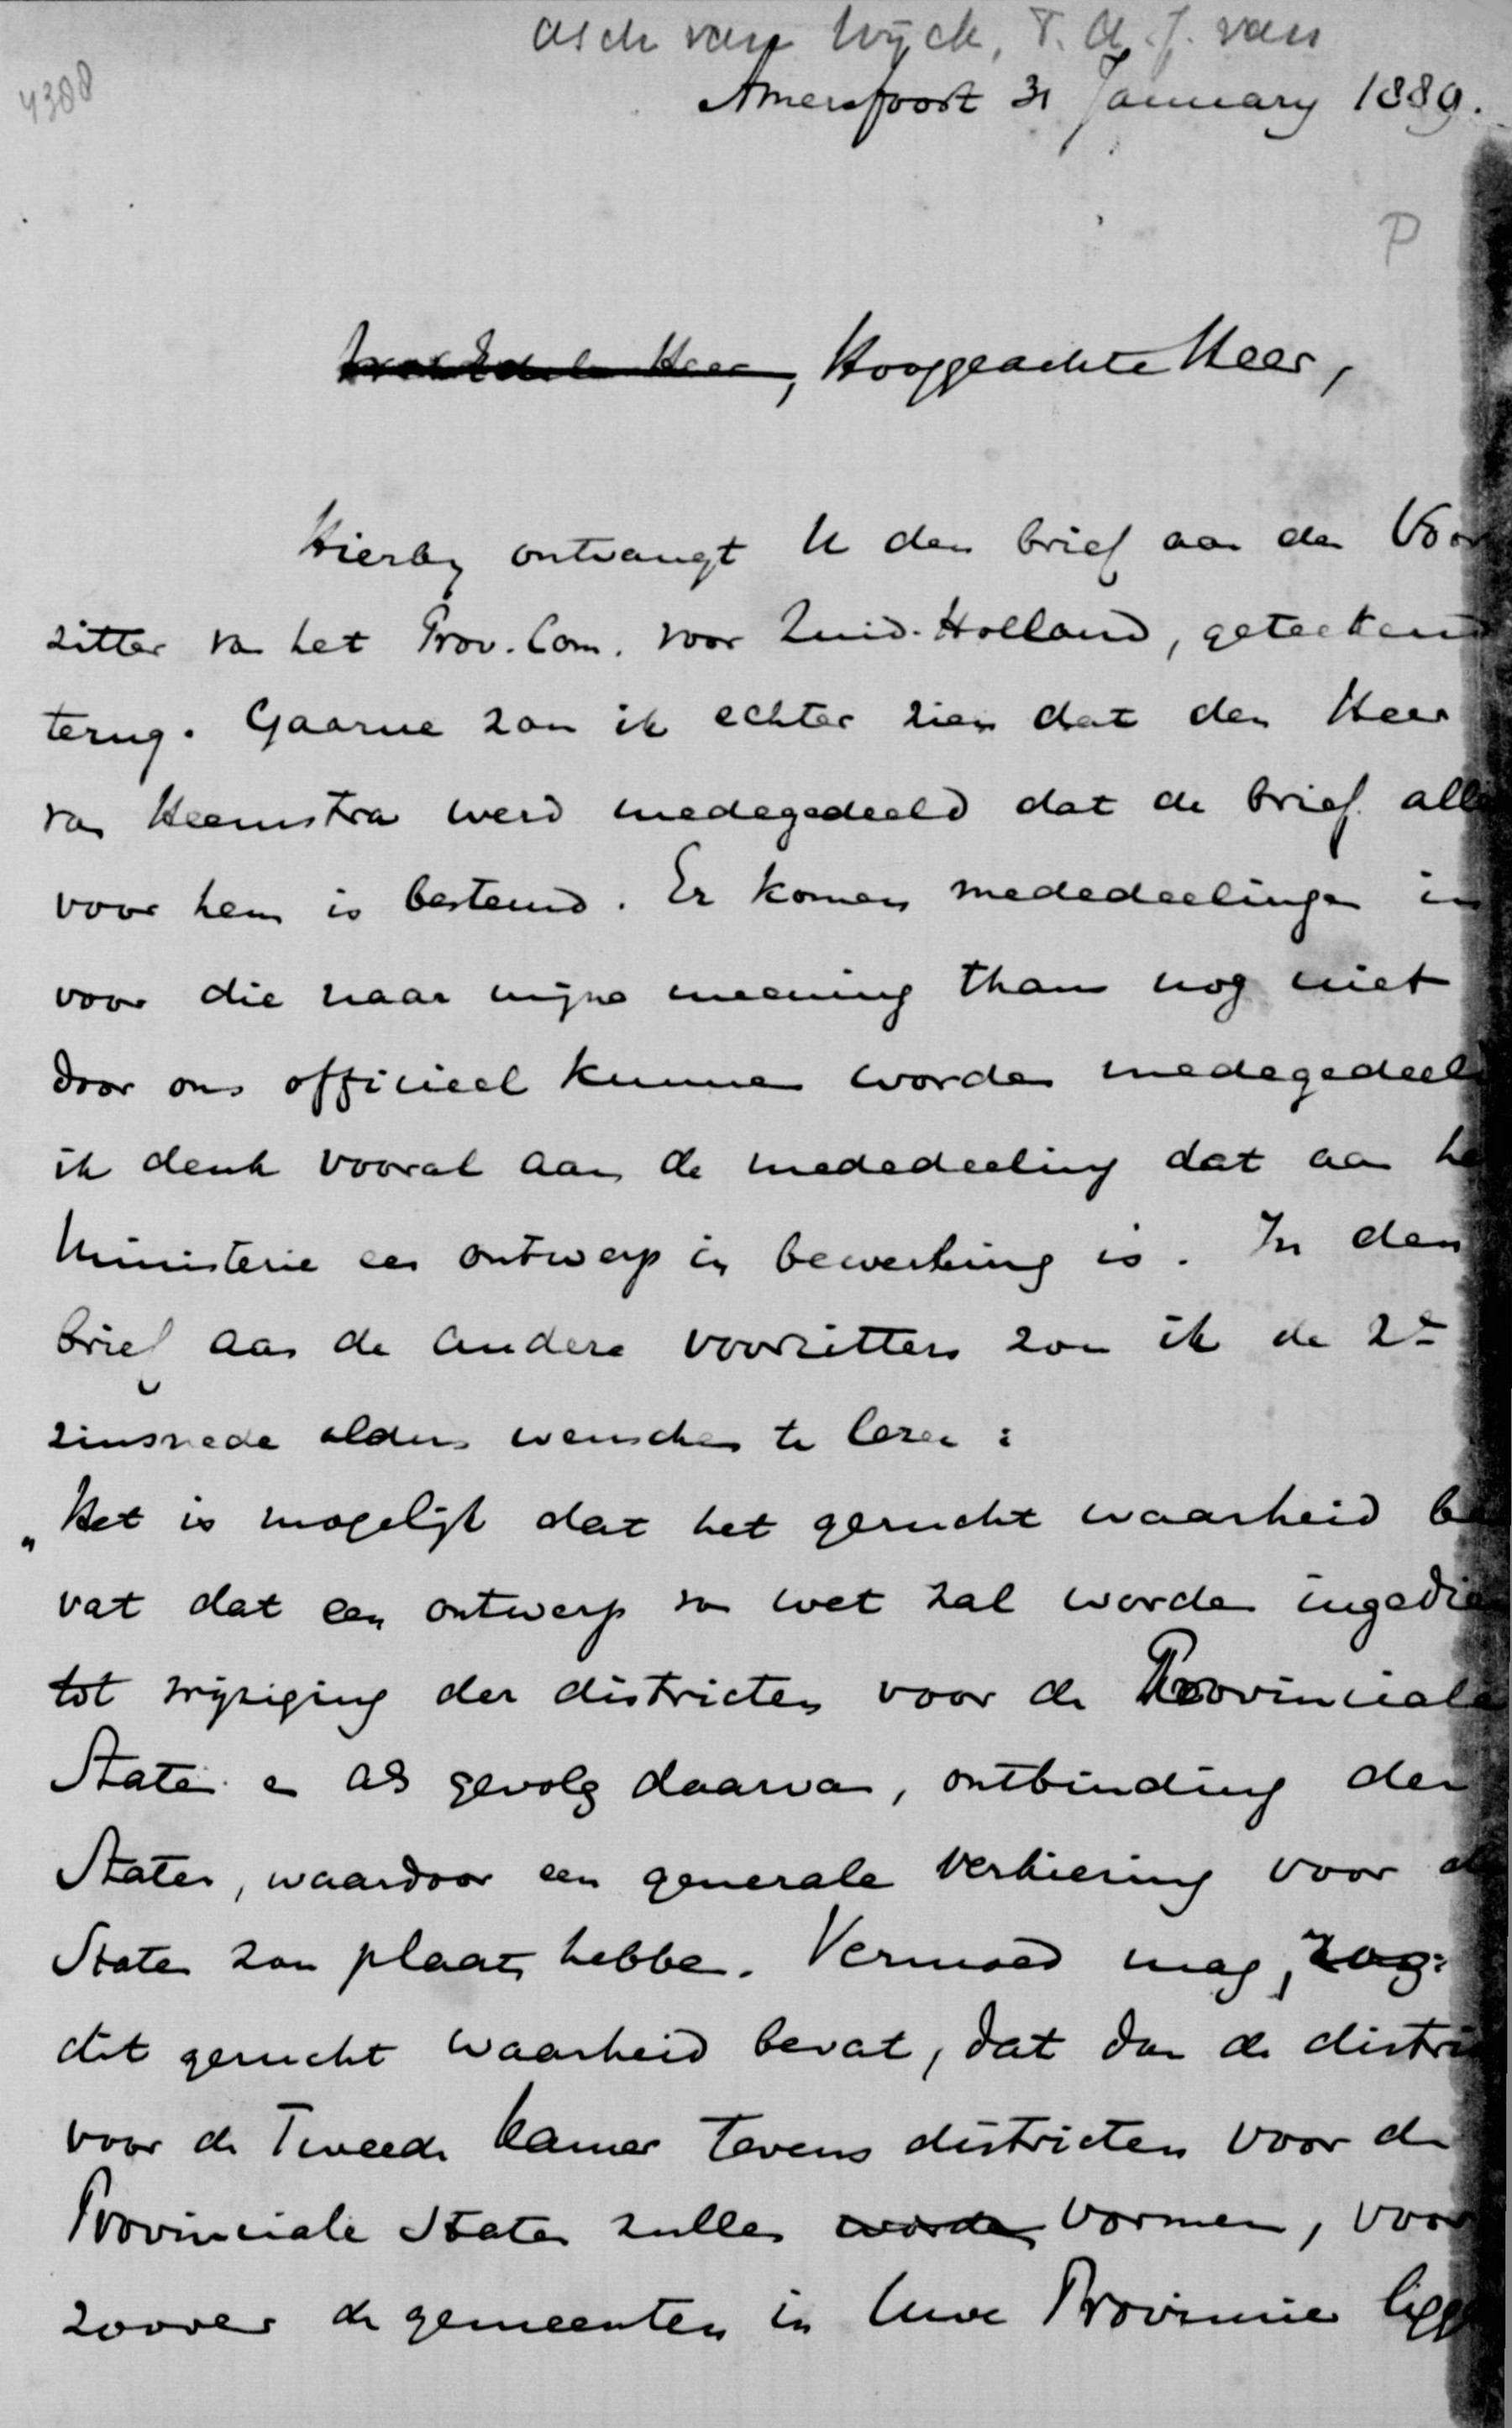 Asch van Wijck, T. A. J. van
4308
Amersfoort 31 January 1889.
P
Hooggeachte Heer,
Hierby ontvangt U den brief aan den Voor
zitter van het Prov. Com. voor Zuid-Holland, geteekend
terug. Gaarne zou ik echter zien dat den Heer
van Heemstra werd medegedeeld dat de brief alle
voor hem is bestemd. Er komen mededeelingen in
voor die naar mijne meening thans nog niet
door ons officieel kunnen worden medegedeeld
ik denk vooral aan de mededeeling dat aan he
Ministerie een ontwerp in bewerking is. In den
brief aan de andere voorzitters zou ik de 2e
zinsnede aldus wenschen te lezen:
„Het is mogelijk dat het gerucht waarheid be
vat dat een ontwerp van wet zal worden ingedien
tot wijziging der districten voor de Provinciale
Staten en als gevolg daarvan, ontbinding der
Staten, waardoor een generale verkiezing voor de
Staten zou plaats hebben. Vermoed mag,
dit gerucht waarheid bevat, dat dan de distric
voor de Tweede Kamer tevens districten voor de
Provinciale Staten zullen worden vormen, voor
zoover de gemeenten in Uwe Provincie ligge